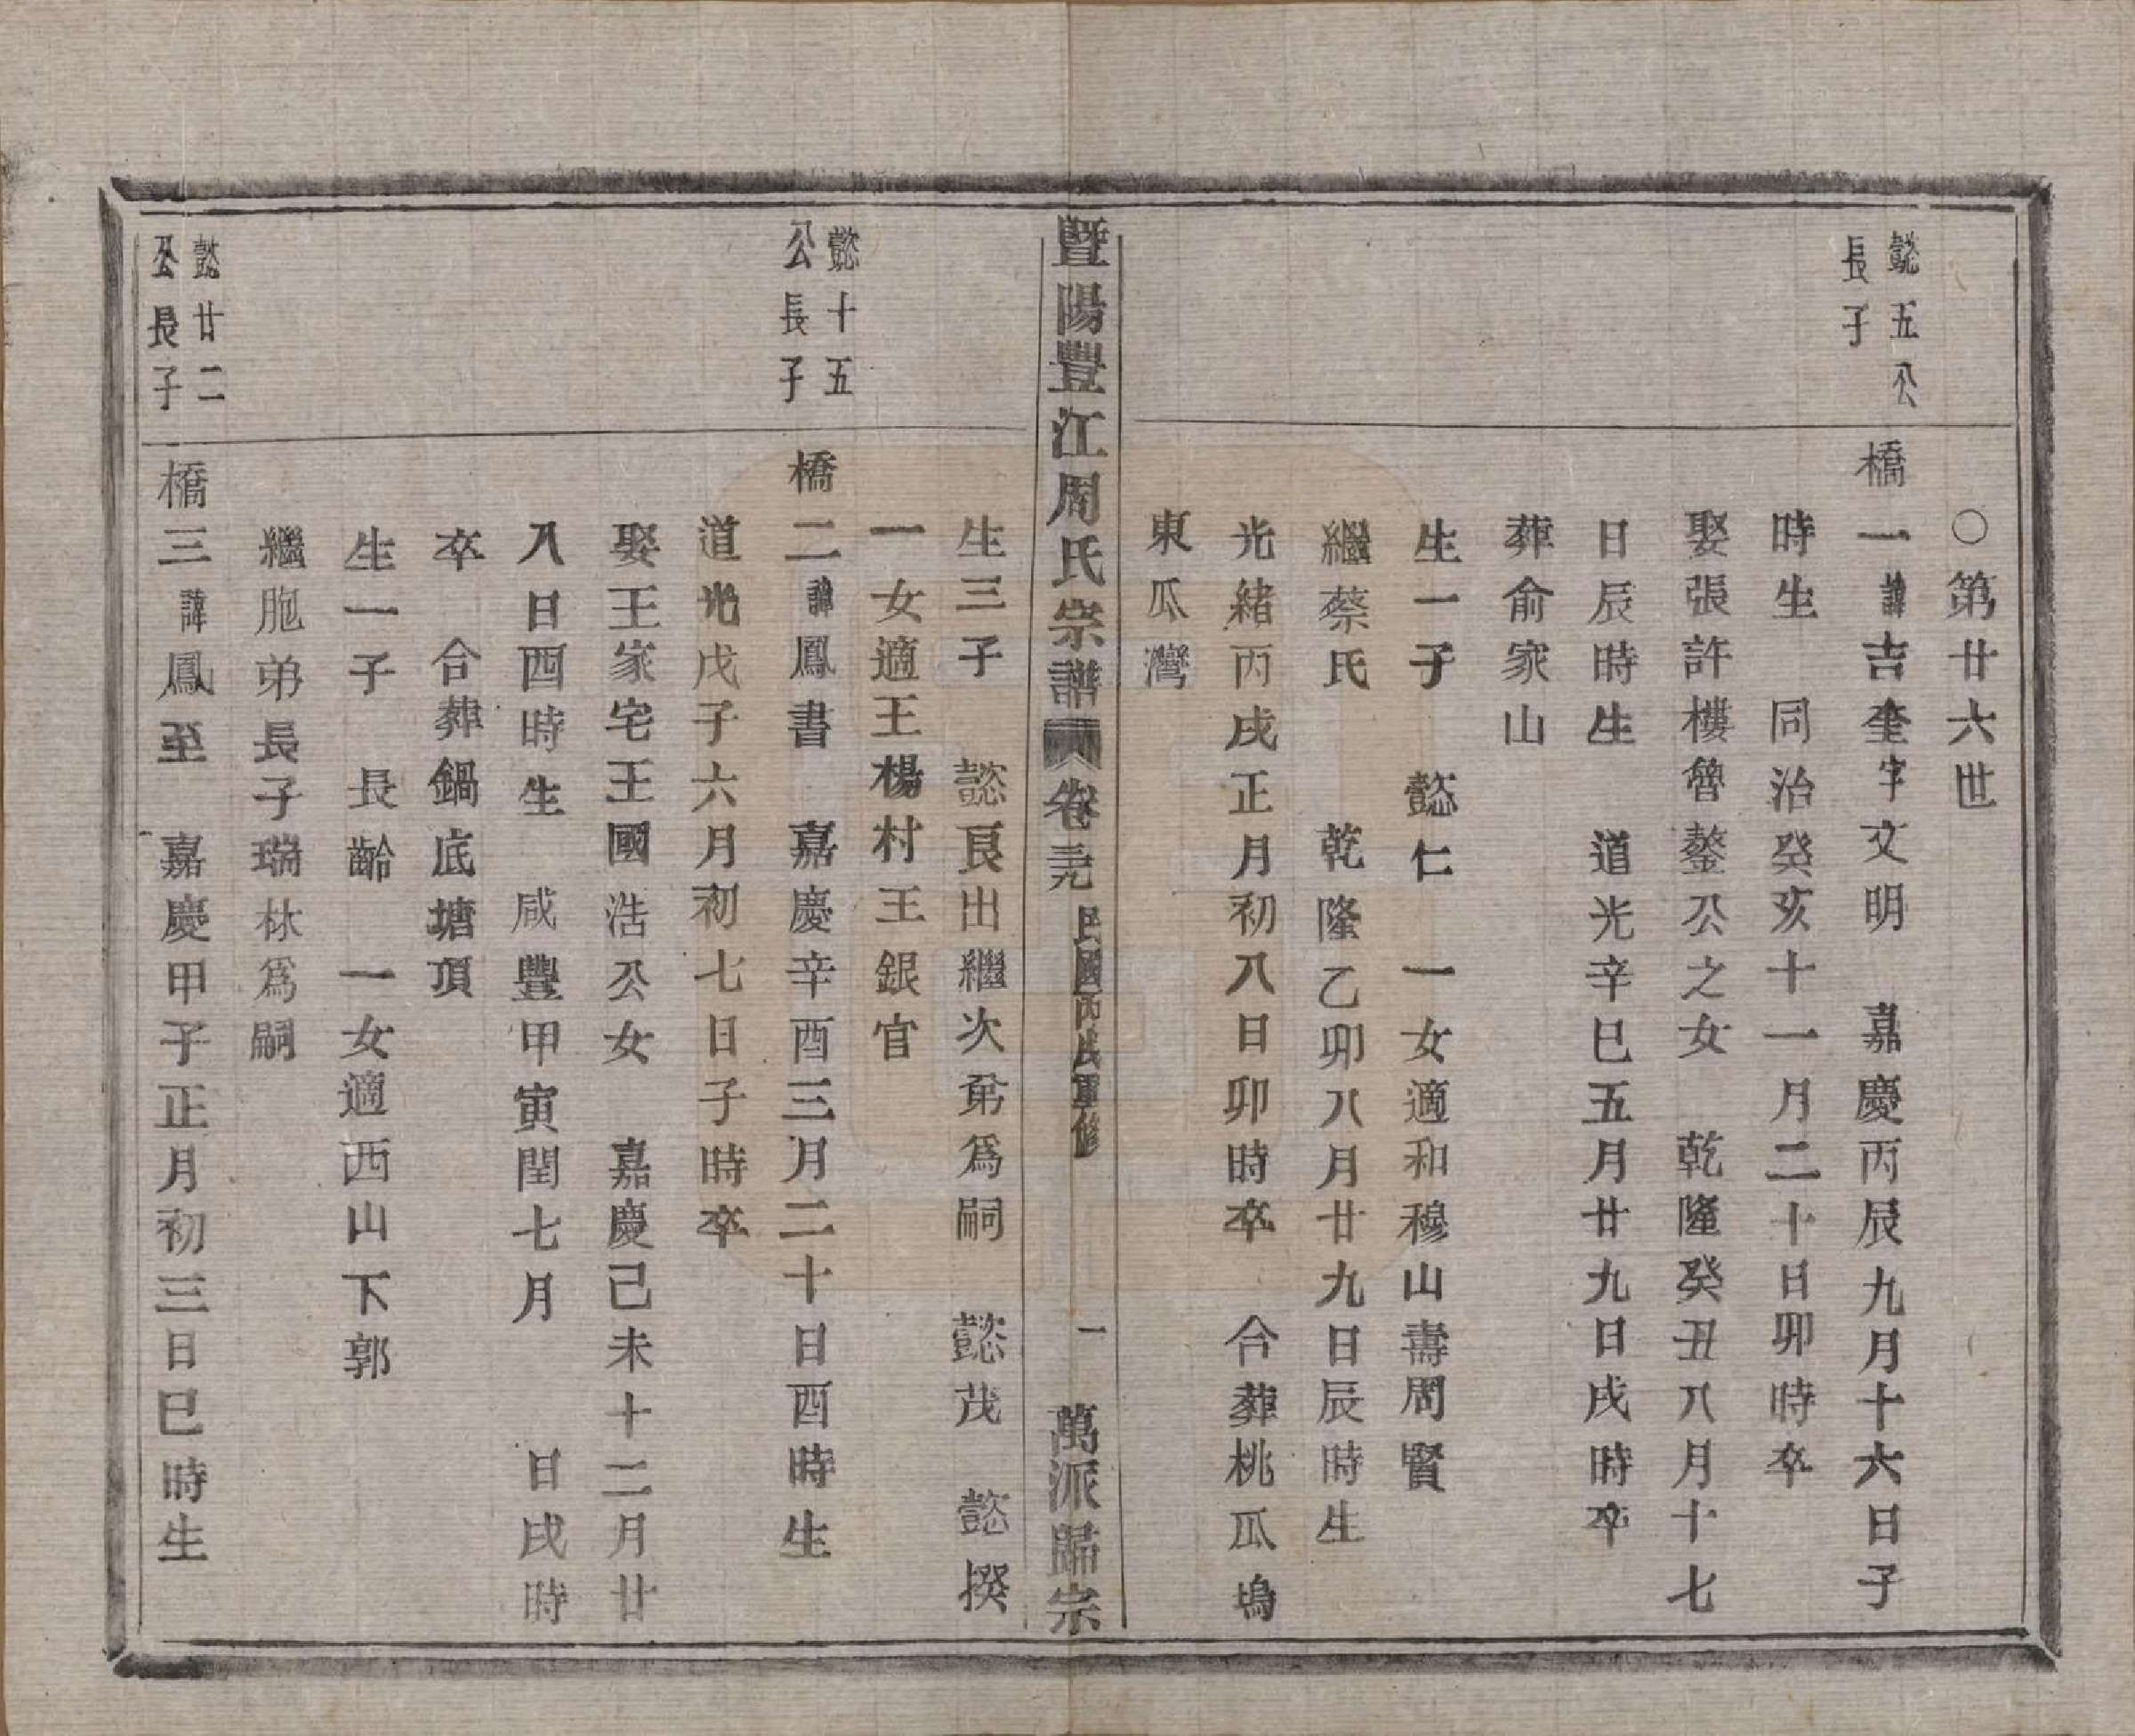 ○第廿六世
懿五公
長子
橋一諱吉奎字文明　嘉慶丙辰九月十六日子
時生　同治癸亥十一月二十日卯時卒
娶張許樓魯鏊公之女　乾隆癸丑八月十七
日辰時生　道光辛巳五月廿九日戌時卒
葬俞家山
生一子　懿仁　一女適和穆山壽周賢
繼蔡氏　乾隆乙卯八月廿九日辰時生
光緒丙戌正月初八日卯時卒　合葬桃瓜塢
東瓜灣
暨陽豐江周氏宗譜　卷 民國丙戌重修　一　萬派歸宗
生三子　懿良出繼次弟爲嗣　懿茂　懿揆
一女適王楊村王銀官
懿十五
公長子
橋二諱鳳書　嘉慶辛酉三月二十日酉時生
道光戊子六月初七日子時卒
娶王家宅王國浩公女　嘉慶己未十二月廿
八日酉時生　咸豐甲寅閏七月　日戌時
卒　合葬鍋底塘頂
生一子　長齡　一女適西山下郭
繼胞弟長子瑞林爲嗣
懿廿二
公長子
橋三諱鳳至　嘉慶甲子正月初三日巳時生